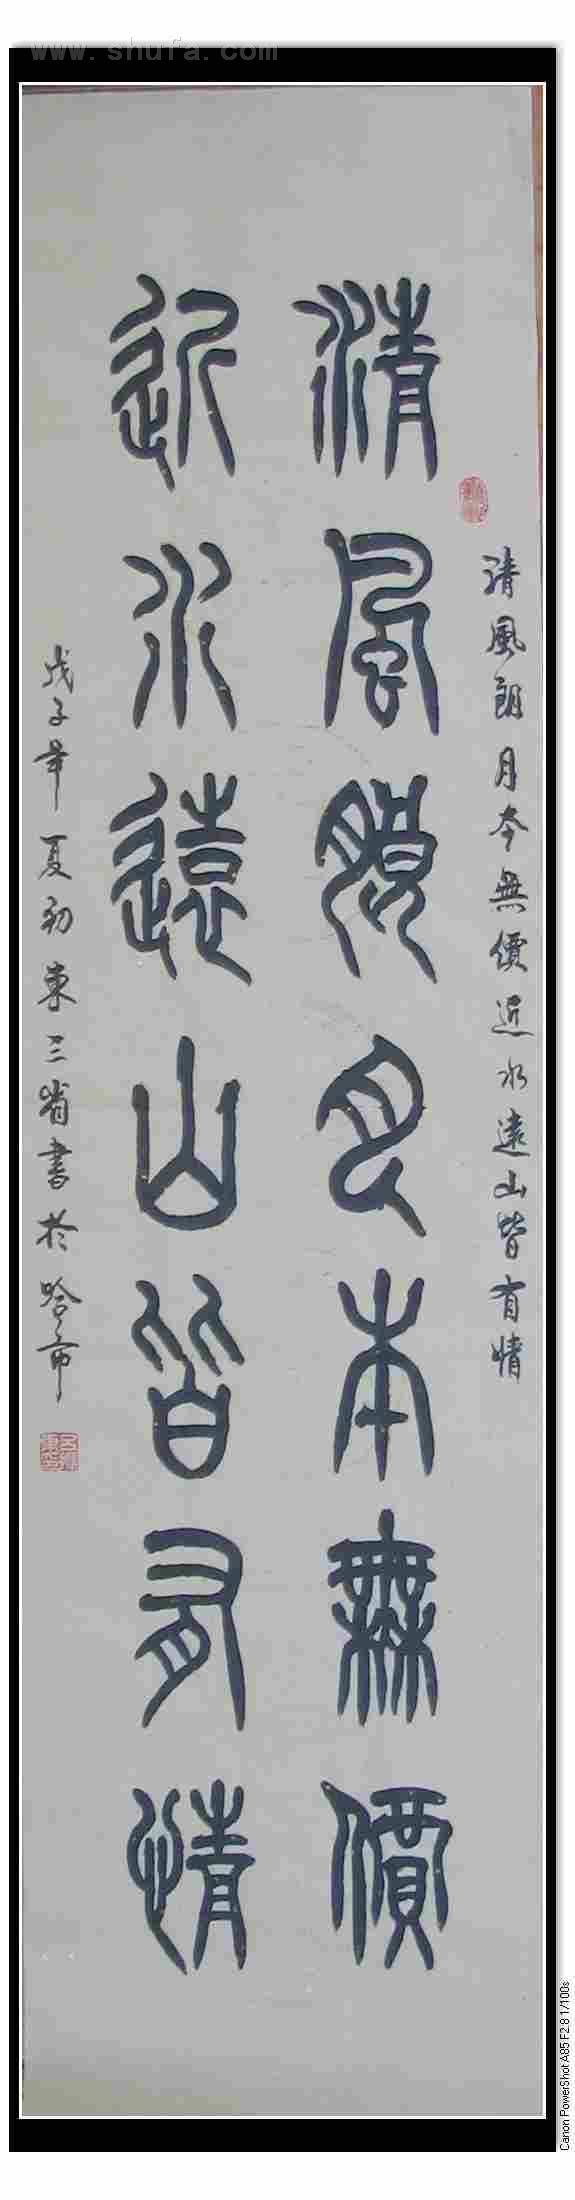 www.shufa.com
清風朗月本無價近水遠山皆有情
清風朗月本無價
近水遠山皆有情
戊子年夏初東三省書於哈市
Canon PowerShot A85 F2.8 1/100s